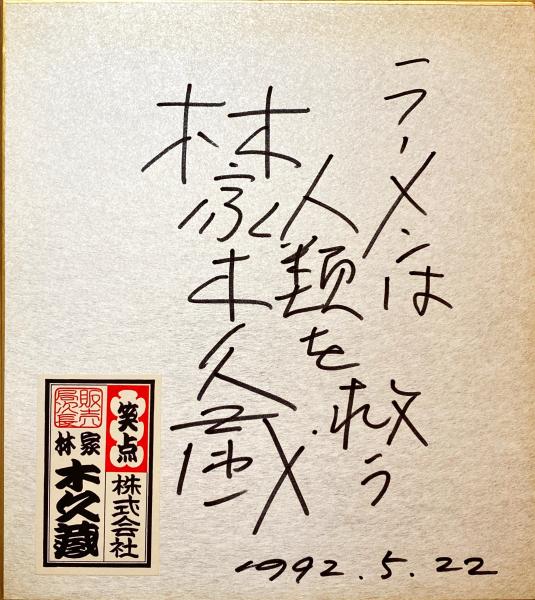 ラーメンは
人類を
救う
林家木久蔵
1992.5.22
笑点
株式会社
販売
局次長
林家
木久蔵